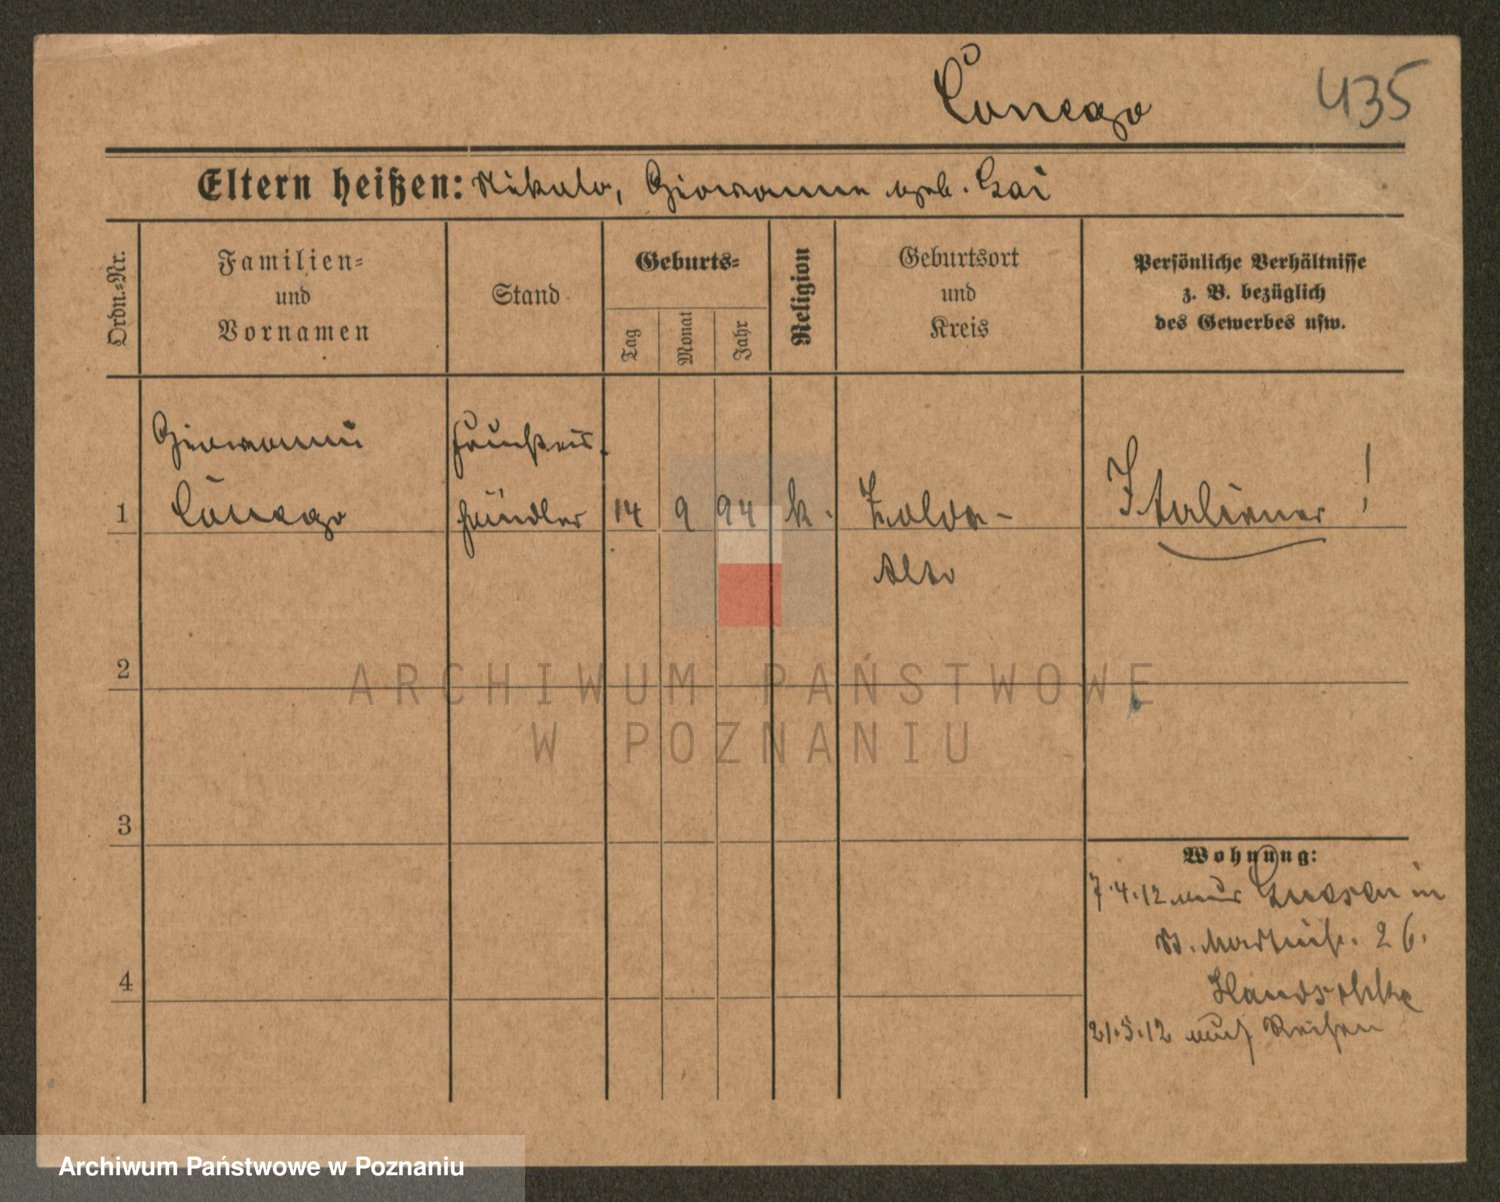 Conego
435
Eltern heißen: Nikolo, Giovanne geb. Gai
Ordn.-Nr.
Familien-
und
Vornamen
Stand
Geburts-
Tag
Monat
Jahr
Religion
Geburtsort
und
Kreis
Persönliche Verhältnisse
z. B. bezüglich
des Gewerbes usw.
Giovanni
Conego
händler
1
14
9
94
k.
Zoldo-
Alto
Italiener !
2
ARCHIWUM PAŃSTWOWE
W POZNANIU
3
4
Wohnung:
7.4.12 aus Gnesen in
St. Martinstr. 26.
21.5.12 auf Reisen
Archiwum Państwowe w Poznaniu